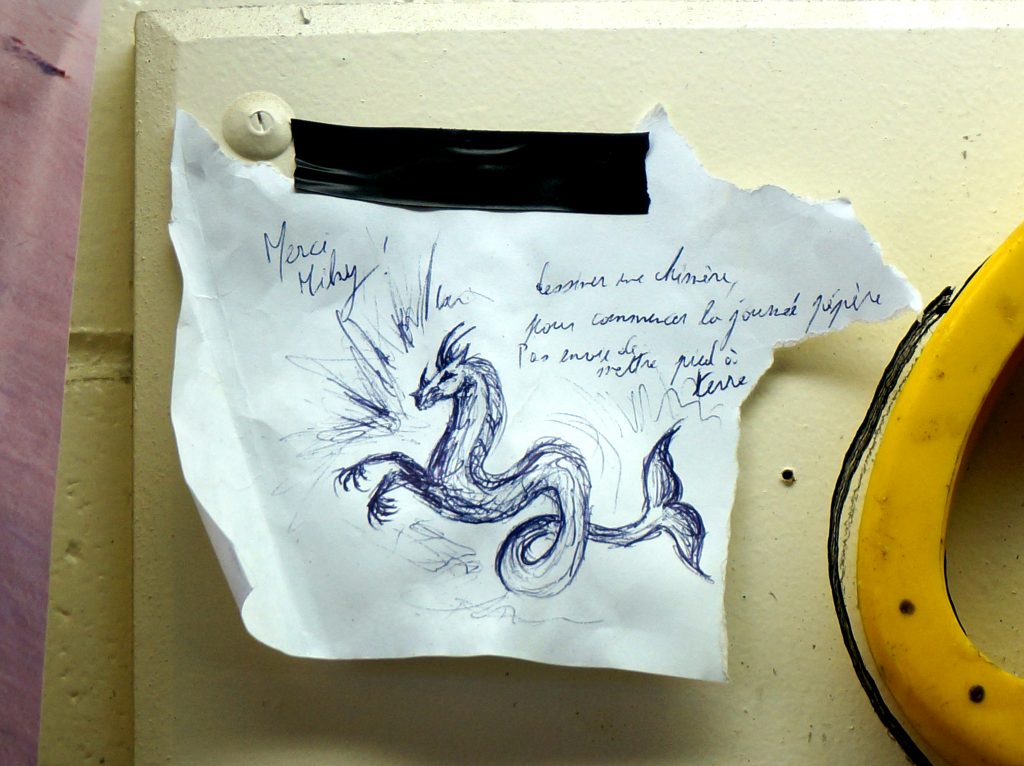 Merci
Miky !
dessiner une chimère,
pour commencer la journée pépère
Pas envie de
mettre pied à
terre